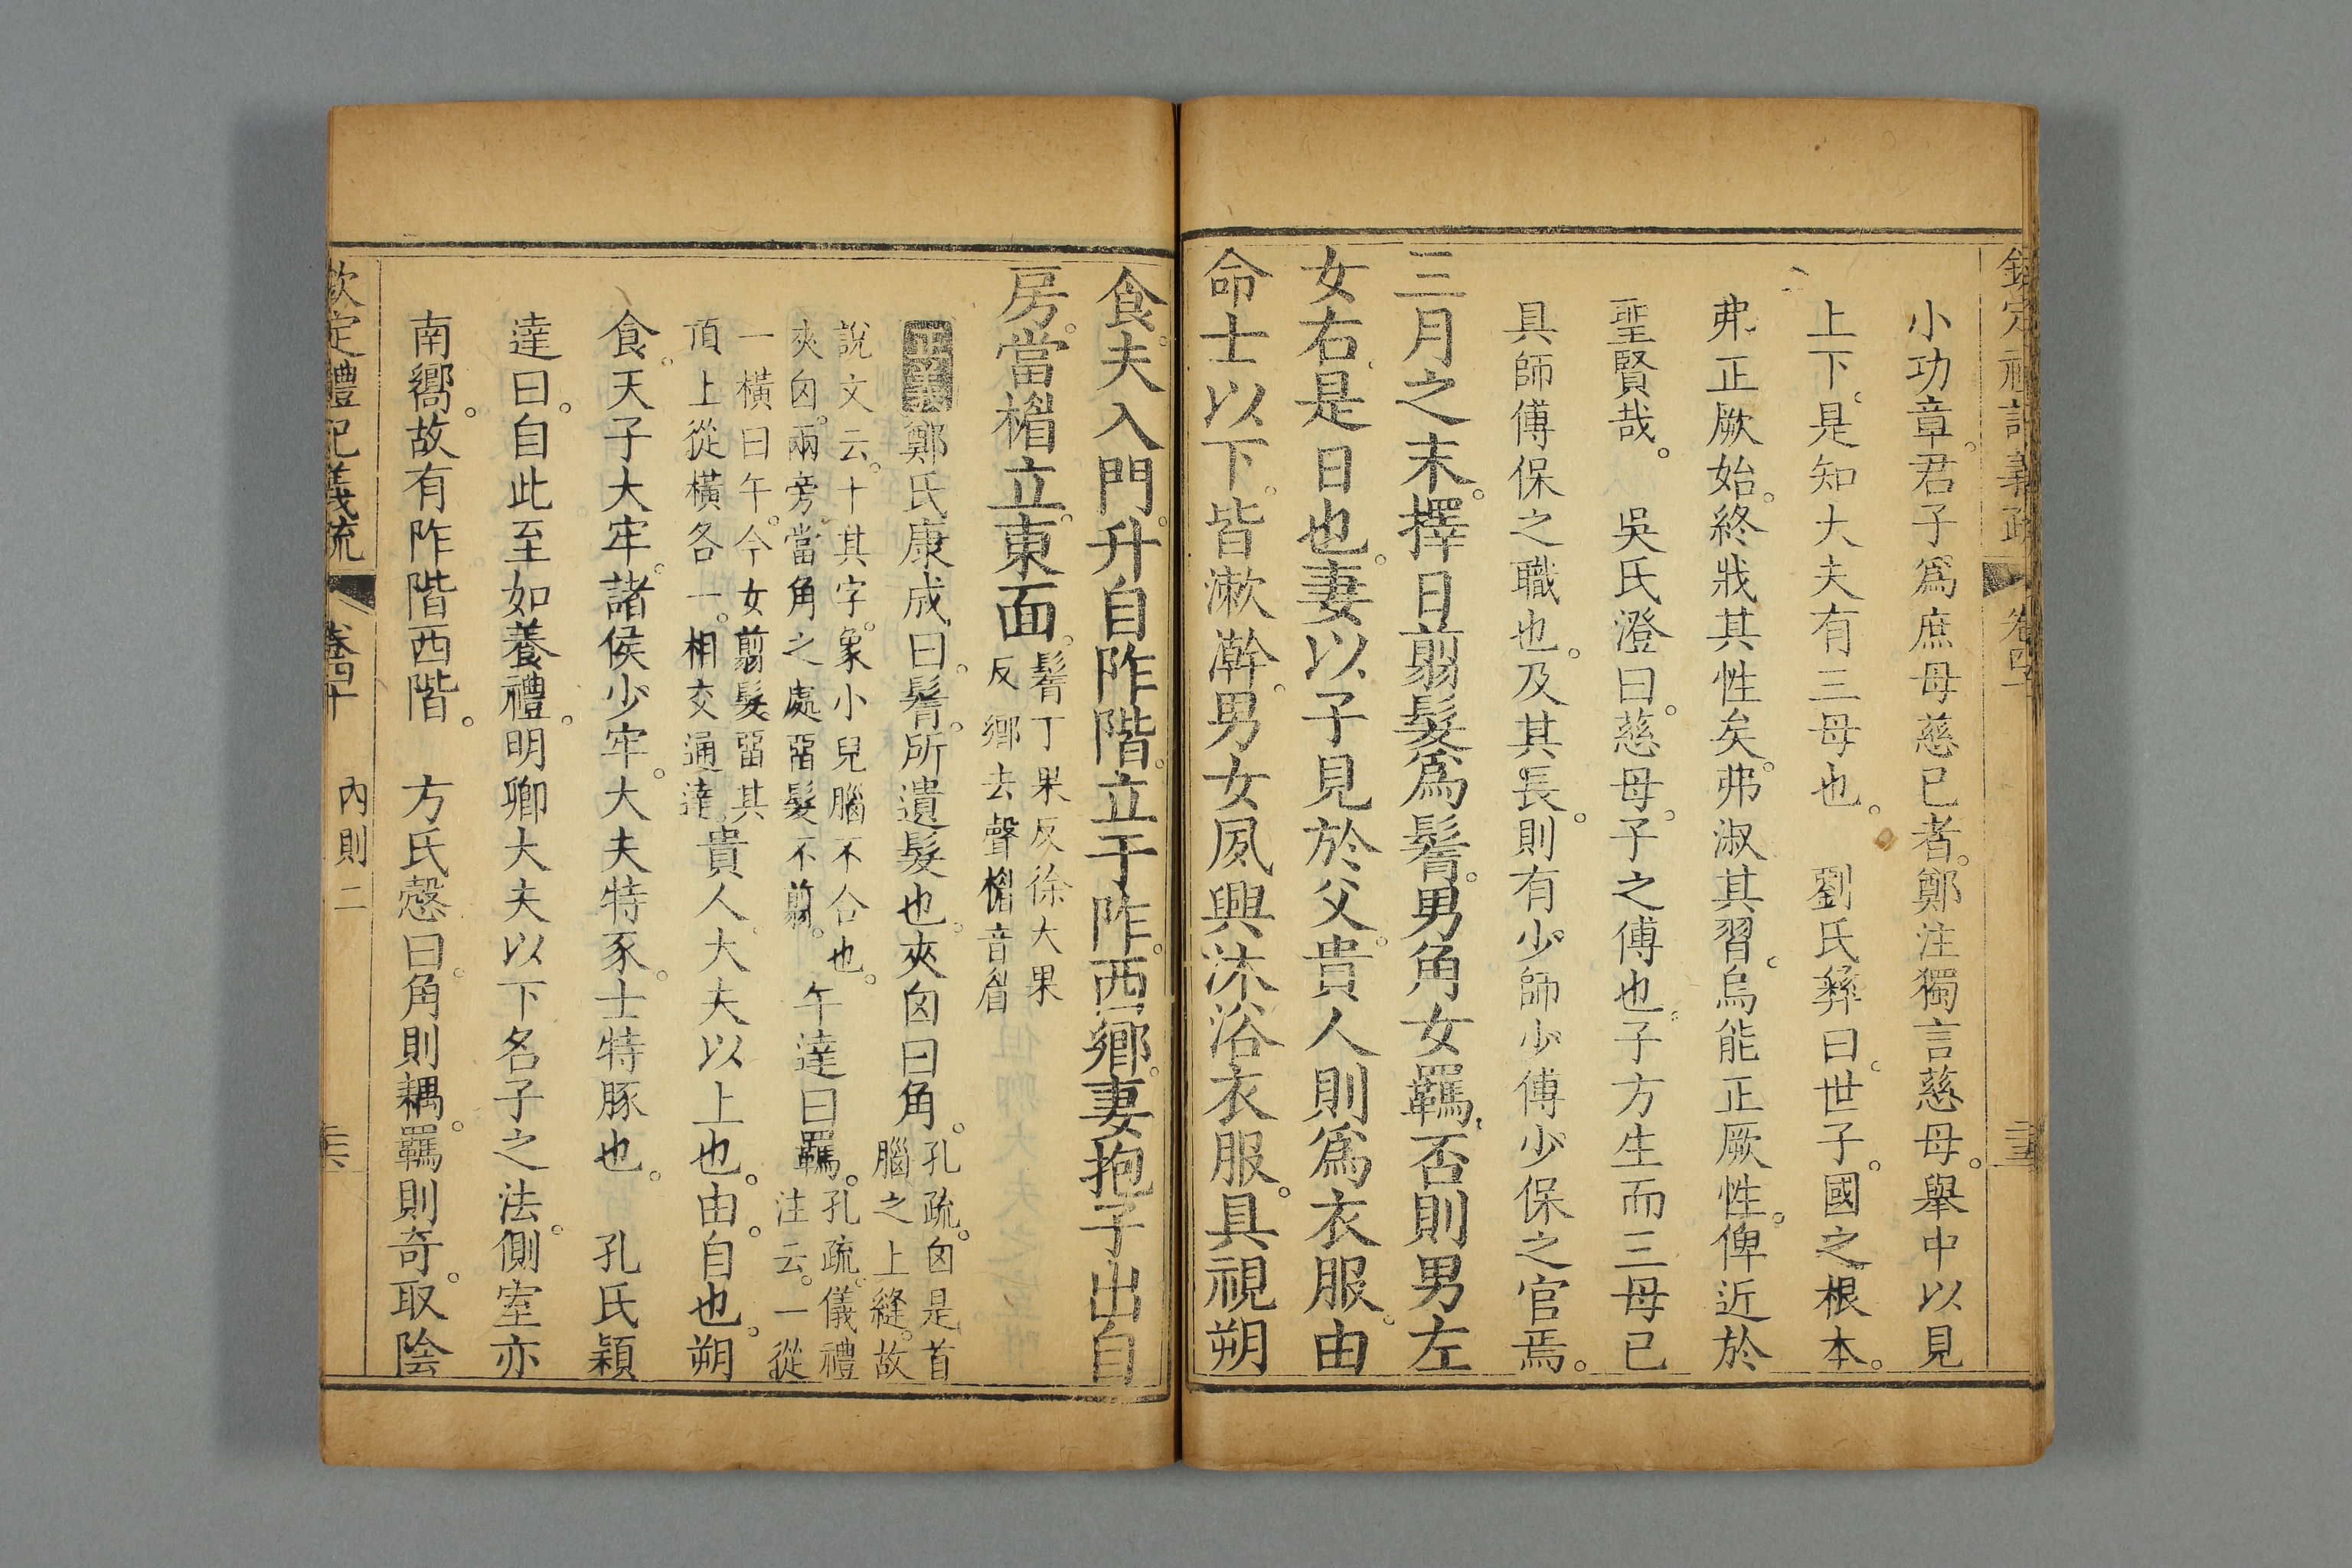 卷四十
小功章。君子爲庶母慈已者。鄭注獨言慈母。舉中以見
上下。是知大夫有三母也。 劉氏彝曰。世子。國之根本。
弗正厥始。終戕其性矣。弗淑其習。烏能正厥性。俾近於
聖賢哉。 吳氏澄曰。慈母。子之傅也。子方生而三母已
具師傅保之職也。及其長。則有少師少傅少保之官焉。
三月之末。擇日翦髮爲鬌。男角女羈。否則男左
女右。是日也。妻以子見於父。貴人則爲衣服。由
命士以下。皆漱澣。男女夙興沐浴衣服。具視朔
食。夫入門。升自阼階。立于阼。西鄉。妻抱子出自
房。當楣立。東面。
鬌丁果反徐大果
反鄉去聲楣音眉
正義鄭氏康成曰。鬌。所遺髮也。夾囟曰角。
孔疏。囟是首
腦之上縫。故
說文云。十其字。象小兒腦不合也。
夾囟。兩旁當角之處。畱髮不翦。
午達曰羈。
孔疏。儀禮
注云。一從
一橫曰午。今女翦髮畱其
頂上從橫各一。相交通達。
貴人。大夫以上也。由。自也。朔
食。天子大牢。諸侯少牢。大夫特豕。士特豚也。 孔氏穎
達曰。自此至如養禮。明卿大夫以下名子之法。側室亦
南嚮。故有阼階西階。 方氏慤曰。角則耦。羈則奇。取陰
欽定禮記義疏 卷四十 內則二